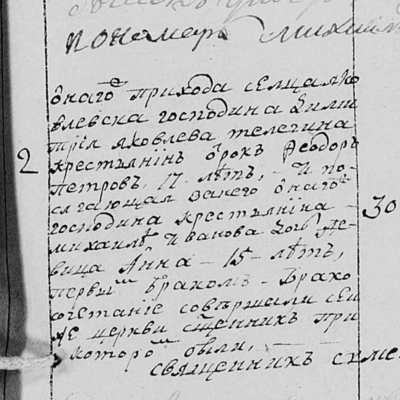 пономарь Михаил
онаго прихода селца яко
влевска господина Дими
трия яковлева телегина
2 крестьянинъ отрокъ Феодоръ
Петровъ, 17 лѣтъ, – и по
сягающая занего онаго
господина крестьянина – 30
михаила Иванова дочь де
вица Анна – 15 лѣтъ,
первымъ бракомъ – Брако
сочетание совершали сеи
же церкви сщенникъ при
которомъ были, –
священникъ симе